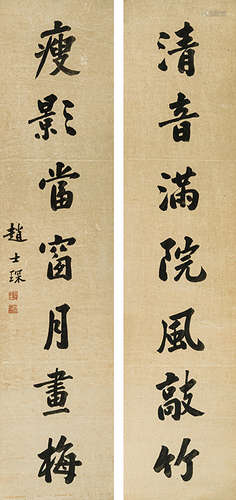 清音滿院風敲竹
瘦影當窗月畫梅
趙士琛